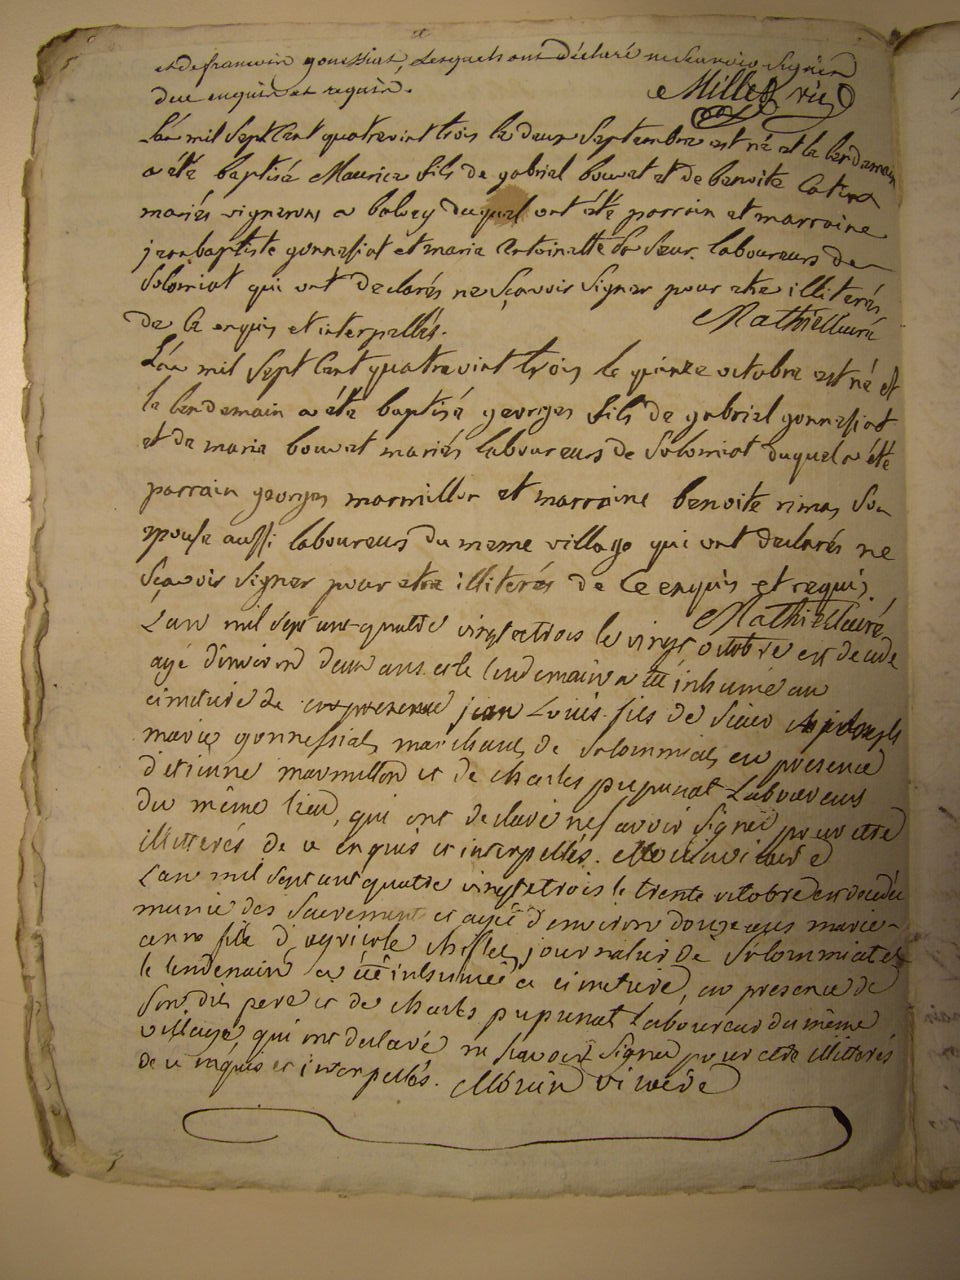 et de francoise gonessiat, lesquels ont déclaré ne scavoir signer
de ce enquis et requis. Millet vic
L'an mil sept cent quatrevint trois le deux septembre est né et le lendemain
a été baptisé Maurice fils de gabriel bouvet et de benoite
mariés vignerons a bolozey duquel ont été parrain et marraine
jean baptiste gonnessiat et marie antoinette sa seur laboureurs de
Solomiat qui ont declarés ne sçavoir signer pour etre illiterés
de ce enquis et interpellés. Mathieu curé
L'an mil sept cent quatrevint trois le quinze octobre est né et
le lendemain a été baptisé georges fils de gabriel gonnessiat
et de marie bouvet mariés laboureurs de Solomiat duquel a été
parrain georges marmillon et marraine benoite rimas son
epouse aussi laboureurs du meme village qui ont declarés ne
sçavoir signer pour etre illiterés de ce enquis et requis.
L'an mil sept cent quatre vingt et trois le vingt octobre est decede Mathieu curé
agé d'environ deux ans et le lendemain a été inhumé au
cimetiere de jean Louis fils de sieur
marie gonnessiat, marchand de Solommiat, en presence
d'etienne marmillon et de charles pupunat Laboureurs
du même lieu, qui ont declaré ne savoir signer pour etre
illitterés de ce enquis et interpellés. Morin vicaire
L'an mil sept cent quatre vingt et trois le trente octobre est decedée
munie des sacrements et agée d'environ douze ans marie-
anne fille d'agricole chiflet, journalier de Solommiat et
le lendemain a été inhumée au cimetiere, en presence de
son dit pere et de charles pupunat Laboureur du même
village, qui ont declaré ne savoir signer pour etre illitterés
de ce enquis et interpellés. Morin vicaire